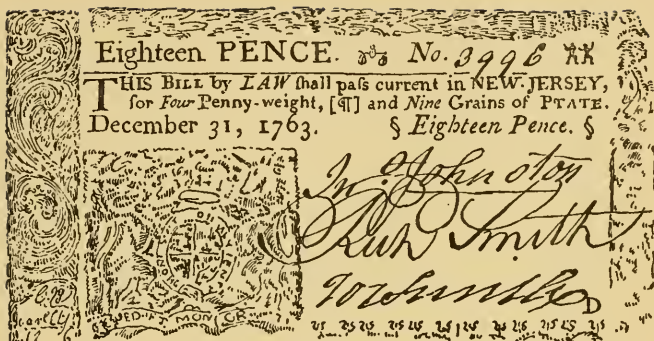 Eighteen PENCE. No. 3996
THIS BILL by LAW ſhall paſs current in NEW-JERSEY,
for Four Penny-weight, [¶] and Nine Grains of PTATE.
December 31, 1763. § Eighteen Pence. §
Jno. Johnston
Smith
MON